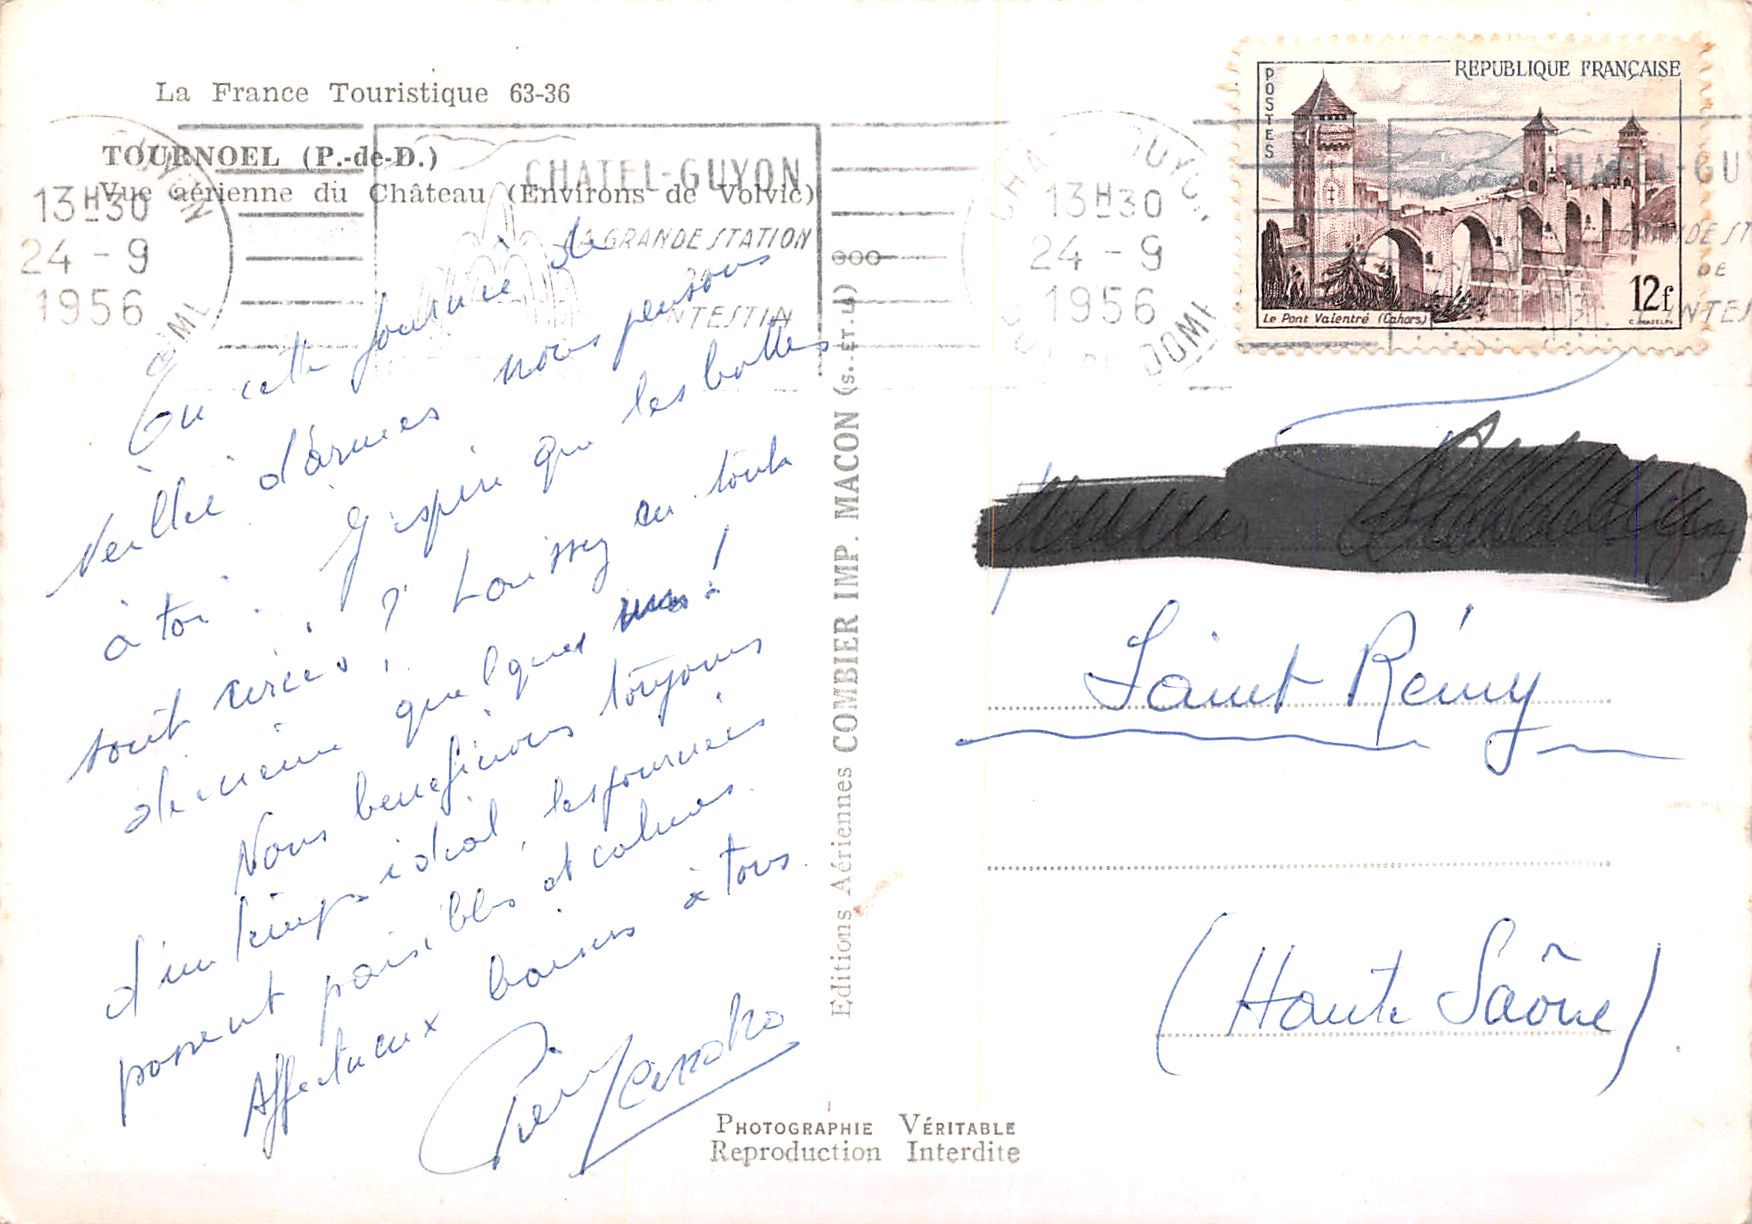 La France Touristique 63-36
TOURNOEL (P.-de-D.)
Vue aérienne du Château (Environs de Volvic)
13H30
24 - 9
1956
CHATEL-GUYON
LA GRANDE STATION
INTESTIN
13H30
24 - 9
1956
DOME
POSTES
REPUBLIQUE FRANÇAISE
Le Pont Valentré (Cahors)
12f
En cette journée de
veillée d'armes nous pensons
à toi. J'espère que les bottes
sont cirées ! ? Laissez en toute
dernière quelques unes !
Nous bénéficions toujours
d'un temps idéal, les journées
passent paisibles et calmes.
Affectueux baisers à tous.
Editions Aériennes COMBIER IMP. MACON (S.-ET-L.)
Saint Rémy
(Haute Saône)
PHOTOGRAPHIE VÉRITABLE
Reproduction Interdite